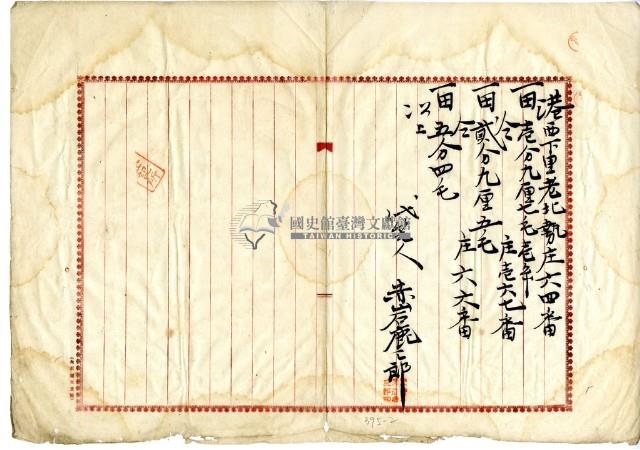 港西下里老北勢庄六四番
一田壱分九厘七毛
仝 庄壱六七番
一田貳分九厘五毛
仝 庄六六番
一田五分四毛
以上
人 赤岩 郎
國史館臺灣文獻館
TAIWAN HISTORICA
395-2